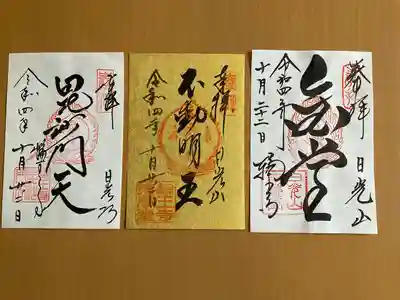 奉拝 日光山
金堂
令和四年 輪王寺
十月二十二日
奉拝 日光山
不動明王
令和四年十月廿二日
奉拝 日光山
毘沙門天
令和四年十月廿二日